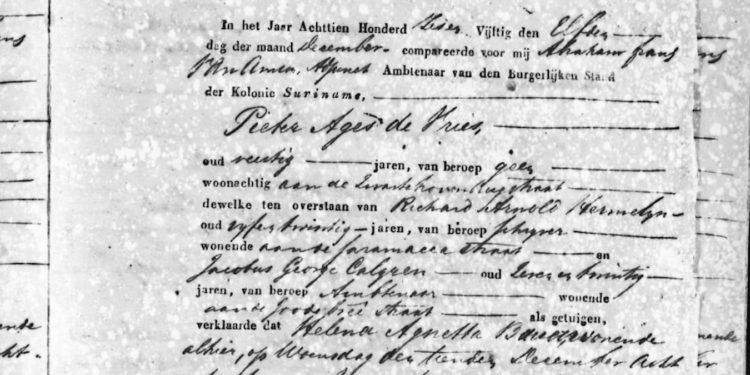 In het Jaar Achttien Honderd Zes en Vijftig den Elfden
dag der maand December compareerde voor mij Abraham Frans
Adjunct Ambtenaar van den Burgerlijken Stand
der Kolonie Suriname,
Pieter Ages de Vries,
oud veertig jaren, van beroep geen
woonachtig aan de Zwartehovenbrugstraat
dewelke ten overstaan van Richard Arnold Hermelyn
oud vyf en twintig jaren, van beroep schryver
wonende aan de Saramacca straat en
Jacobus George Calgren oud Zeven en twintig
jaren, van beroep Ambtenaar wonende
aan de Joode bree straat als getuigen,
verklaarde dat Helena Agnetta wonende
alhier, op Woensdag den tienden December Acht